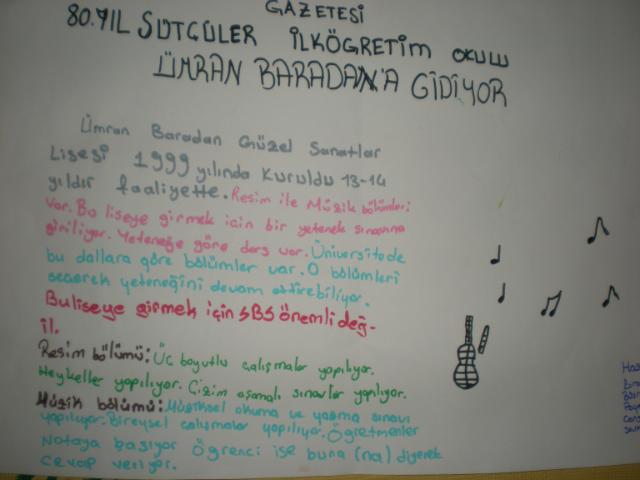 GAZETESİ
80.YIL SÜTÇÜLER İLKÖGRETİM OKULU
ÜMRAN BARADAN'A GİDİYOR
Ümran Baradan Güzel Sanatlar
Lisesi 1999 yılında Kuruldu 13-14
yıldır faaliyette. Resim ile Müzik bölümleri
var. Bu liseye girmek için bir yetenek sınavına
giriliyor. Yeteneğe göre ders var. Üniversitede
bu dallara göre bölümler var. O bölümleri
seçerek yeteneğini devam ettirebiliyor.
Bu liseye girmek için SBS önemli değ-
il.
Resim bölümü: Üç boyutlu çalışmalar yapılıyor.
Heykeller yapılıyor. Çizim aşamalı sınavlar yapılıyor.
Müzik bölümü: Müziksel okuma ve yazma sınavı
yapılıyor. Bireysel çalışmalar yapılıyor. Öğretmenler
Notaya basıyor öğrenci ise buna (na) diyerek
cevap veriyor.